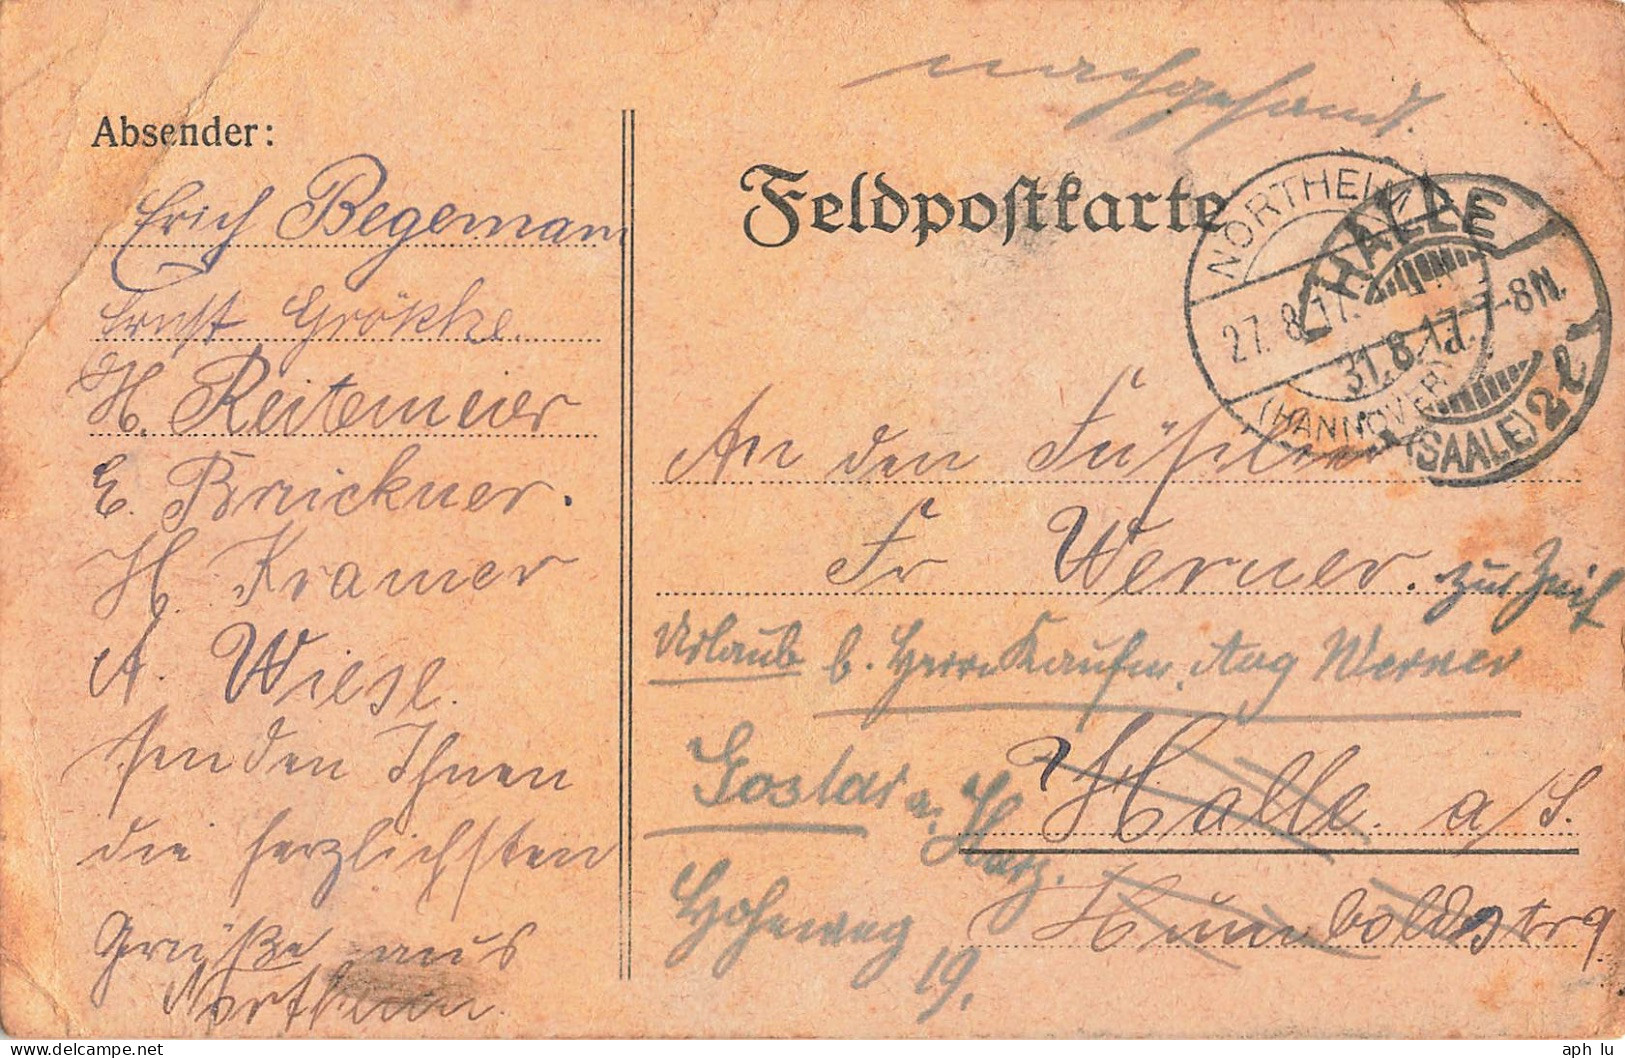 nachgesand.
Absender:
Feldpostkarte
NORTHEIM
(HANNOVER)
27. 8. 17.
HALLE
31.8.17. 7-8N.
(SAALE) 2 l
Erich Begemann
Ernst Grökke.
H. Reitemeier
E. Brückner.
H. Kramer
A. Wiese.
senden Ihnen
die herzlichsten
Grüße aus
Northeim.
An den
Fr Werner. zur Zeit
Urlaub b. Herrn Kaufm. Aug Werner
Goslar a. Harz.
Halle a/S.
Hoheweg 19.
Humboldstr 9.
aph_lu